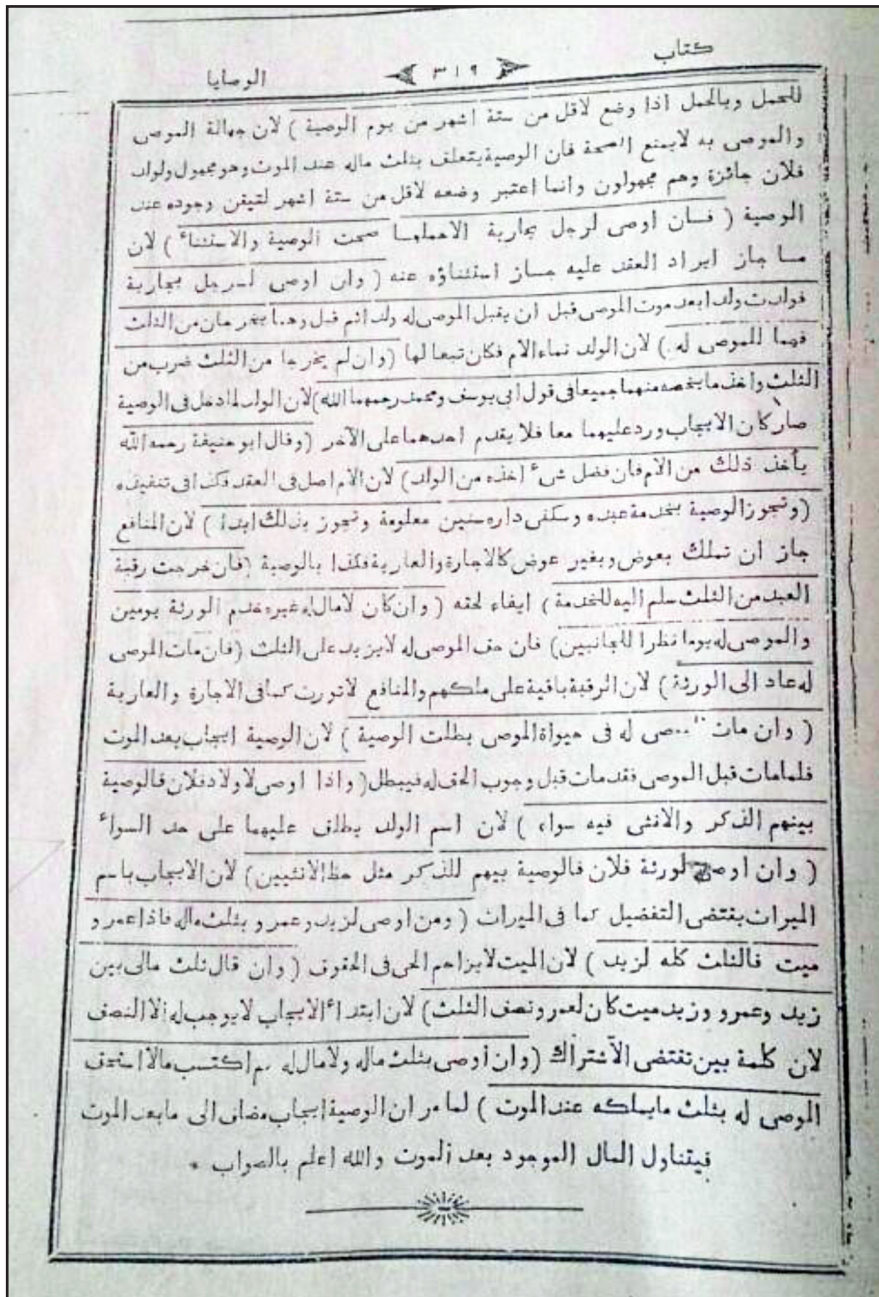 كتاب
﴿ ٣١٩ ﴾
الوصايا
للحمل وبالحمل اذا وضع لاقل من ستة اشهر من يوم الوصية ) لان جهالة الموصى
والموصى به لايمنع الصحة فان الوصية يتعلق بثلث ماله عند الموت وهو مجهول ولولد
فلان جائزة وهم مجهولون وانما اعتبر وضعه لاقل من ستة اشهر لتيقن وجوده عند
الوصية ( فان اوصى لرجل بجارية الاحملها صحت الوصية والاستثناء ) لان
ما جاز ايراد العقد عليه جاز استثناؤه عنه ( وان اوصى لرجل بجارية
فولدت ولدا بعد موت الموصى قبل ان يقبل الموصى له ولدا ثم قبل وهما يخرجان من الثلث
فهما للموصى له ) لان الولد نماء الام فكان تبعا لها ( وان لم يخرجا من الثلث ضرب من
الثلث واخذ ما يخصه منهما جميعا فى قول ابى يوسف ومحمد رحمهما الله ) لان الولد لما دخل فى الوصية
صار كان الايجاب ورد عليهما معا فلا يقدم احدهما على الآخر ( وقال ابو حنيفة رحمه الله
يأخذ ذلك من الام فان فضل شىء اخذه من الولد ) لان الام اصل فى العقد فكذا فى تنفيذه
( وتجوز الوصية بخدمة عبده وسكنى داره سنين معلومة وتجوز بذلك ابدا ) لان المنافع
جاز ان تملك بعوض وبغير عوض كالاجارة والعارية فكذا بالوصية ( فان خرجت رقبة
العبد من الثلث سلم اليه للخدمة ) ايفاء لحقه ( وان كان لا مال له غيره خدم الورثة يومين
والموصى له يوما نظرا للجانبين ) فان حق الموصى له لا يزيد على الثلث ( فان مات الموصى
له عاد الى الورثة ) لان الرقبة باقية على ملكهم والمنافع لا تورث كما فى الاجارة والعارية
( وان مات صى له فى حيوة الموصى بطلت الوصية ) لان الوصية ايجاب بعد الموت
فلما مات قبل الموصى فقد مات قبل وجوب الحق له فيبطل ( واذا اوصى لاولاد فلان فالوصية
بينهم الذكر والانثى فيه سواء ) لان اسم الولد يطلق عليهما على حد السواء
( وان اوصى لورثة فلان فالوصية بيهم للذكر مثل حظ الانثيين ) لان الايجاب باسم
الميراث يقتضى التفضيل كما فى الميراث ( ومن اوصى لزيد وعمرو بثلث ماله فاذا عمرو
ميت فالثلث كله لزيد ) لان الميت لا يزاحم الحى فى الحقوق ( وان قال ثلث مالى بين
زيد وعمرو وزيد ميت كان لعمرو نصف الثلث ) لان ابتداء الايجاب لا يوجب له الا النصف
لان كلمة بين تقتضى الاشتراك ( وان اوصى بثلث ماله ولا مال له ثم اكتسب مالا استحق
الموصى له بثلث ما يملكه عند الموت ) لما مر ان الوصية ايجاب مضاف الى ما بعد الموت
فيتناول المال الموجود بعد الموت والله اعلم بالصواب *